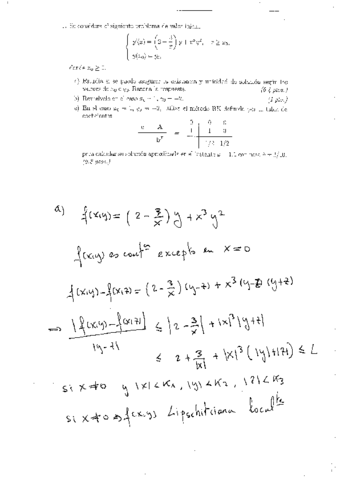 Se considera el siguiente problema de valor inicial
y'(x) = (2 - 3/x) y + x³y², x ≥ x₀,
y(x₀) = y₀,
donde x₀ ≥ 1.
a) Estudia si se puede asegurar la existencia y unicidad de solución según los
valores de x₀ e y₀. Razona la respuesta.
b) Resuélvelo en el caso
c) En el caso utiliza el método RK definido por la tabla de
coeficientes
c A
bᵀ
=
0 0 0
1 1 0
1/2 1/2
para calcular la solución aproximada en el
a) f(x,y) = (2 - 3/x) y + x³ y²
f(x,y) es contᵃ excepto en x=0
f(x,y) - f(x,z) = (2 - 3/x)(y-z) + x³ (y-z)(y+z)
⇒ |f(x,y) - f(x,z)| / |y-z| ≤ |2 - 3/x| + |x|³ |y+z|
≤ 2 + 3/|x| + |x|³ (|y|+|z|) ≤ L
si x≠0 y |x| < K₁, |y| < K₂, |z| < K₃
si x≠0 ⇒ f(x,y) Lipschitciana localᵗᵉ